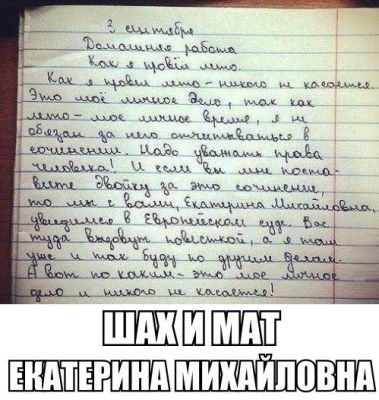 3 сентября
Домашняя работа
Как я провёл лето.
Как я провёл лето - никого не касается.
Это моё личное дело, так как
лето - моё личное время, я не
обязан за него отчитываться в
сочинении. Надо уважать права
человека! И если вы мне поста-
вите двойку за это сочинение,
то мы с Вами, Екатерина Михайловна,
увидимся в Европейском суде. Вас
туда вызовут повесткой, а я там
уже и так буду по другим делам.
А вот по каким - это моё личное
дело и никого не касается!
ШАХ И МАТ
ЕКАТЕРИНА МИХАЙЛОВНА